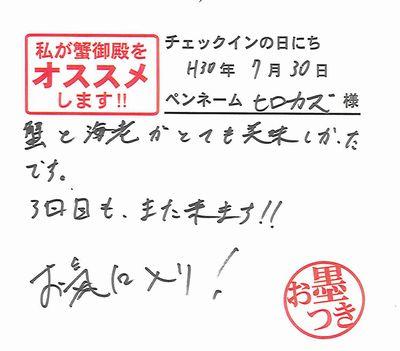 私が蟹御殿を
オススメ
します!!
チェックインの日にち
H30年 7月30日
ペンネーム ヒロカズ 様
蟹と海老がとても美味しかった
です。
3回目も、また来ます!!
お気に入り!
お墨つき